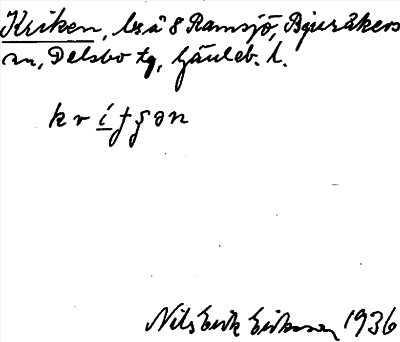 Kriken, bsä 8 Ramsjö, Bjuråkers
sn, Delsbo tg, Gävleb. l.
Nils Erik Eriksson 1936